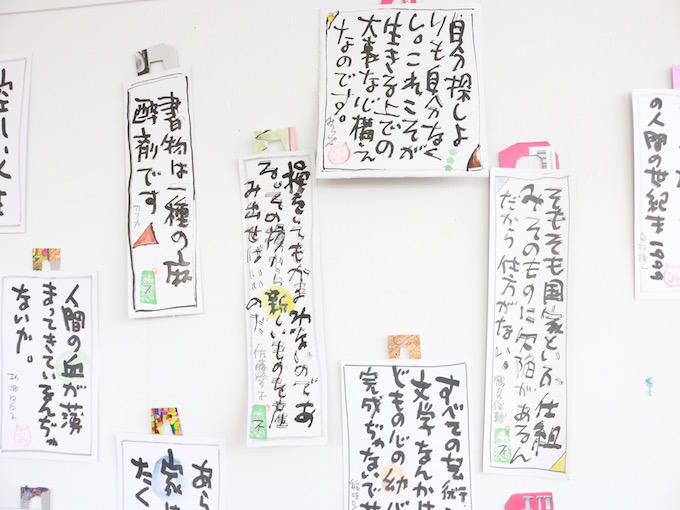 書物は一種の麻
酔剤です
カフカ
自分探しよ
りも自分なく
し。これこそが
生きる上での
大事な心構え
なのです。
損をしてもかまわないのであ
る。その損から新しいものを産
み出せばいいのだ
佐藤愛子
そもそも国家という仕組
みそのものに欠陥があるん
だから仕方がない。
の人間の世紀末1999
人間の血が薄
まってきているんぢゃ
ないか。
すべての芸術
文学なんかは
どもの心の幼
完成ぢゃないで
あら
家は
たく